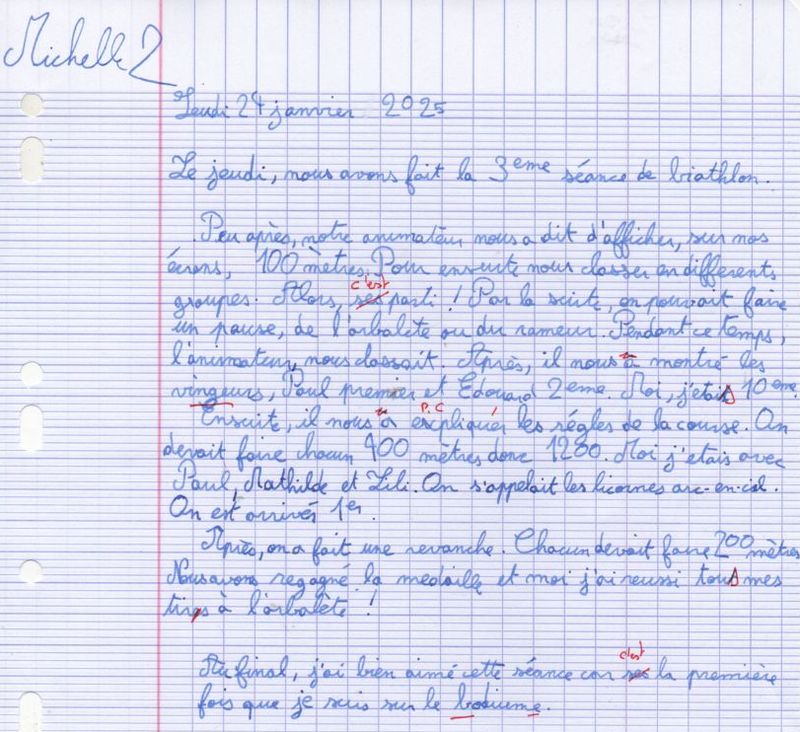 Michelle 2
Jeudi 24 janvier 2025
Le jeudi, nous avons fait la 3eme séance de biathlon.
Peu après, notre animateur nous a dit d'afficher, sur nos
écrans, 100 mètres. Pour ensuite nous classer en differents
c'est
groupes. Alors, ses parti ! Par la suite, on pouvait faire
un pause, de l'arbalète ou du rameur. Pendant ce temps,
l'animateur, nous classait. Après, il nous a montré les
vingeurs, Paul premier et Edouard 2eme. Moi, j'etais 10eme.
Ensuite, il nous a expliquer les régles de la course. On
devait faire chacun 400 mètres donc 1200. Moi j'etais avec
Paul, Mathilde et Lili. On s'appelait les licornes arc-en-ciel.
On est arrivés 1er.
Après, on a fait une revanche. Chacun devait faire 200 mètres
Nous avons regagné la medaille et moi j'ai reussi tous mes
tirs à l'arbalète !
c'est
Au final, j'ai bien aimé cette séance car ses la première
fois que je suis sur le bodiume.